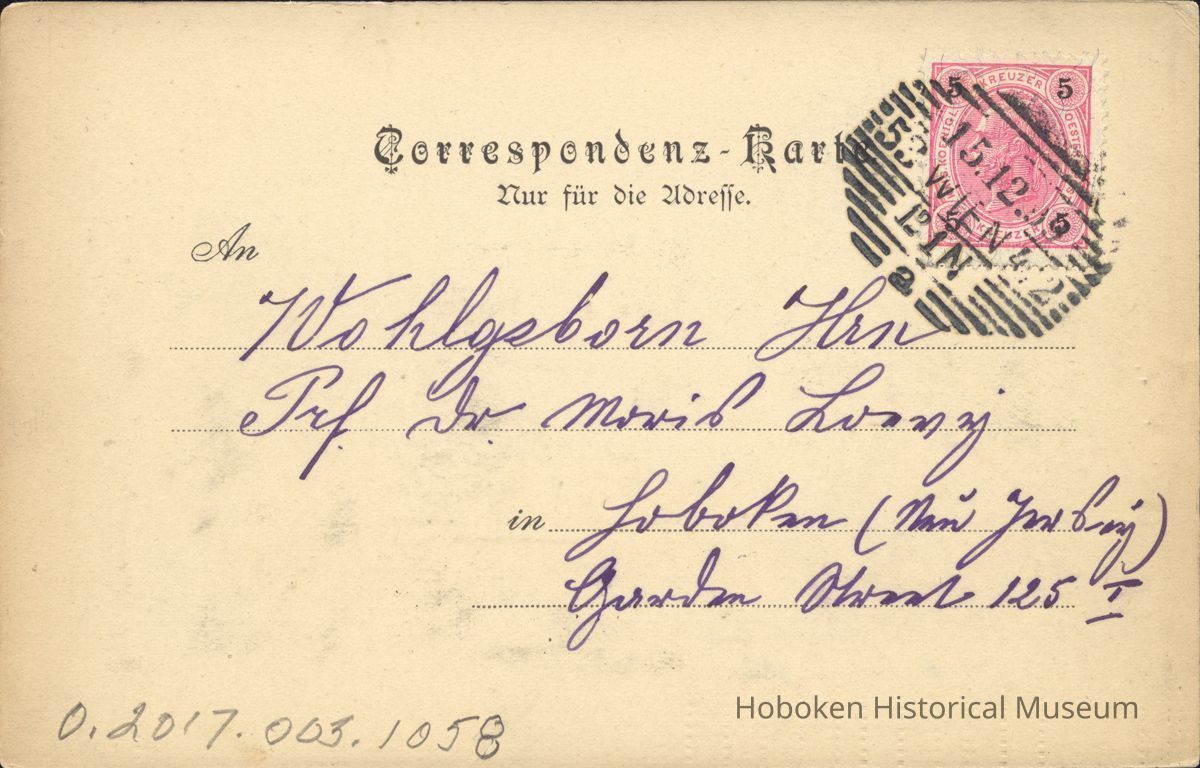 Correspondenz-Karte
Nur für die Adresse.
5 KREUZER 5
5
15.12.
WIEN 4/2
53
12-1N
a
An
Wohlgeborn Hrn
Prf Dr. Moris Loevy
in Hoboken (Neu Jersey)
Garden Street 125 I
0.2017.003.1058
Hoboken Historical Museum